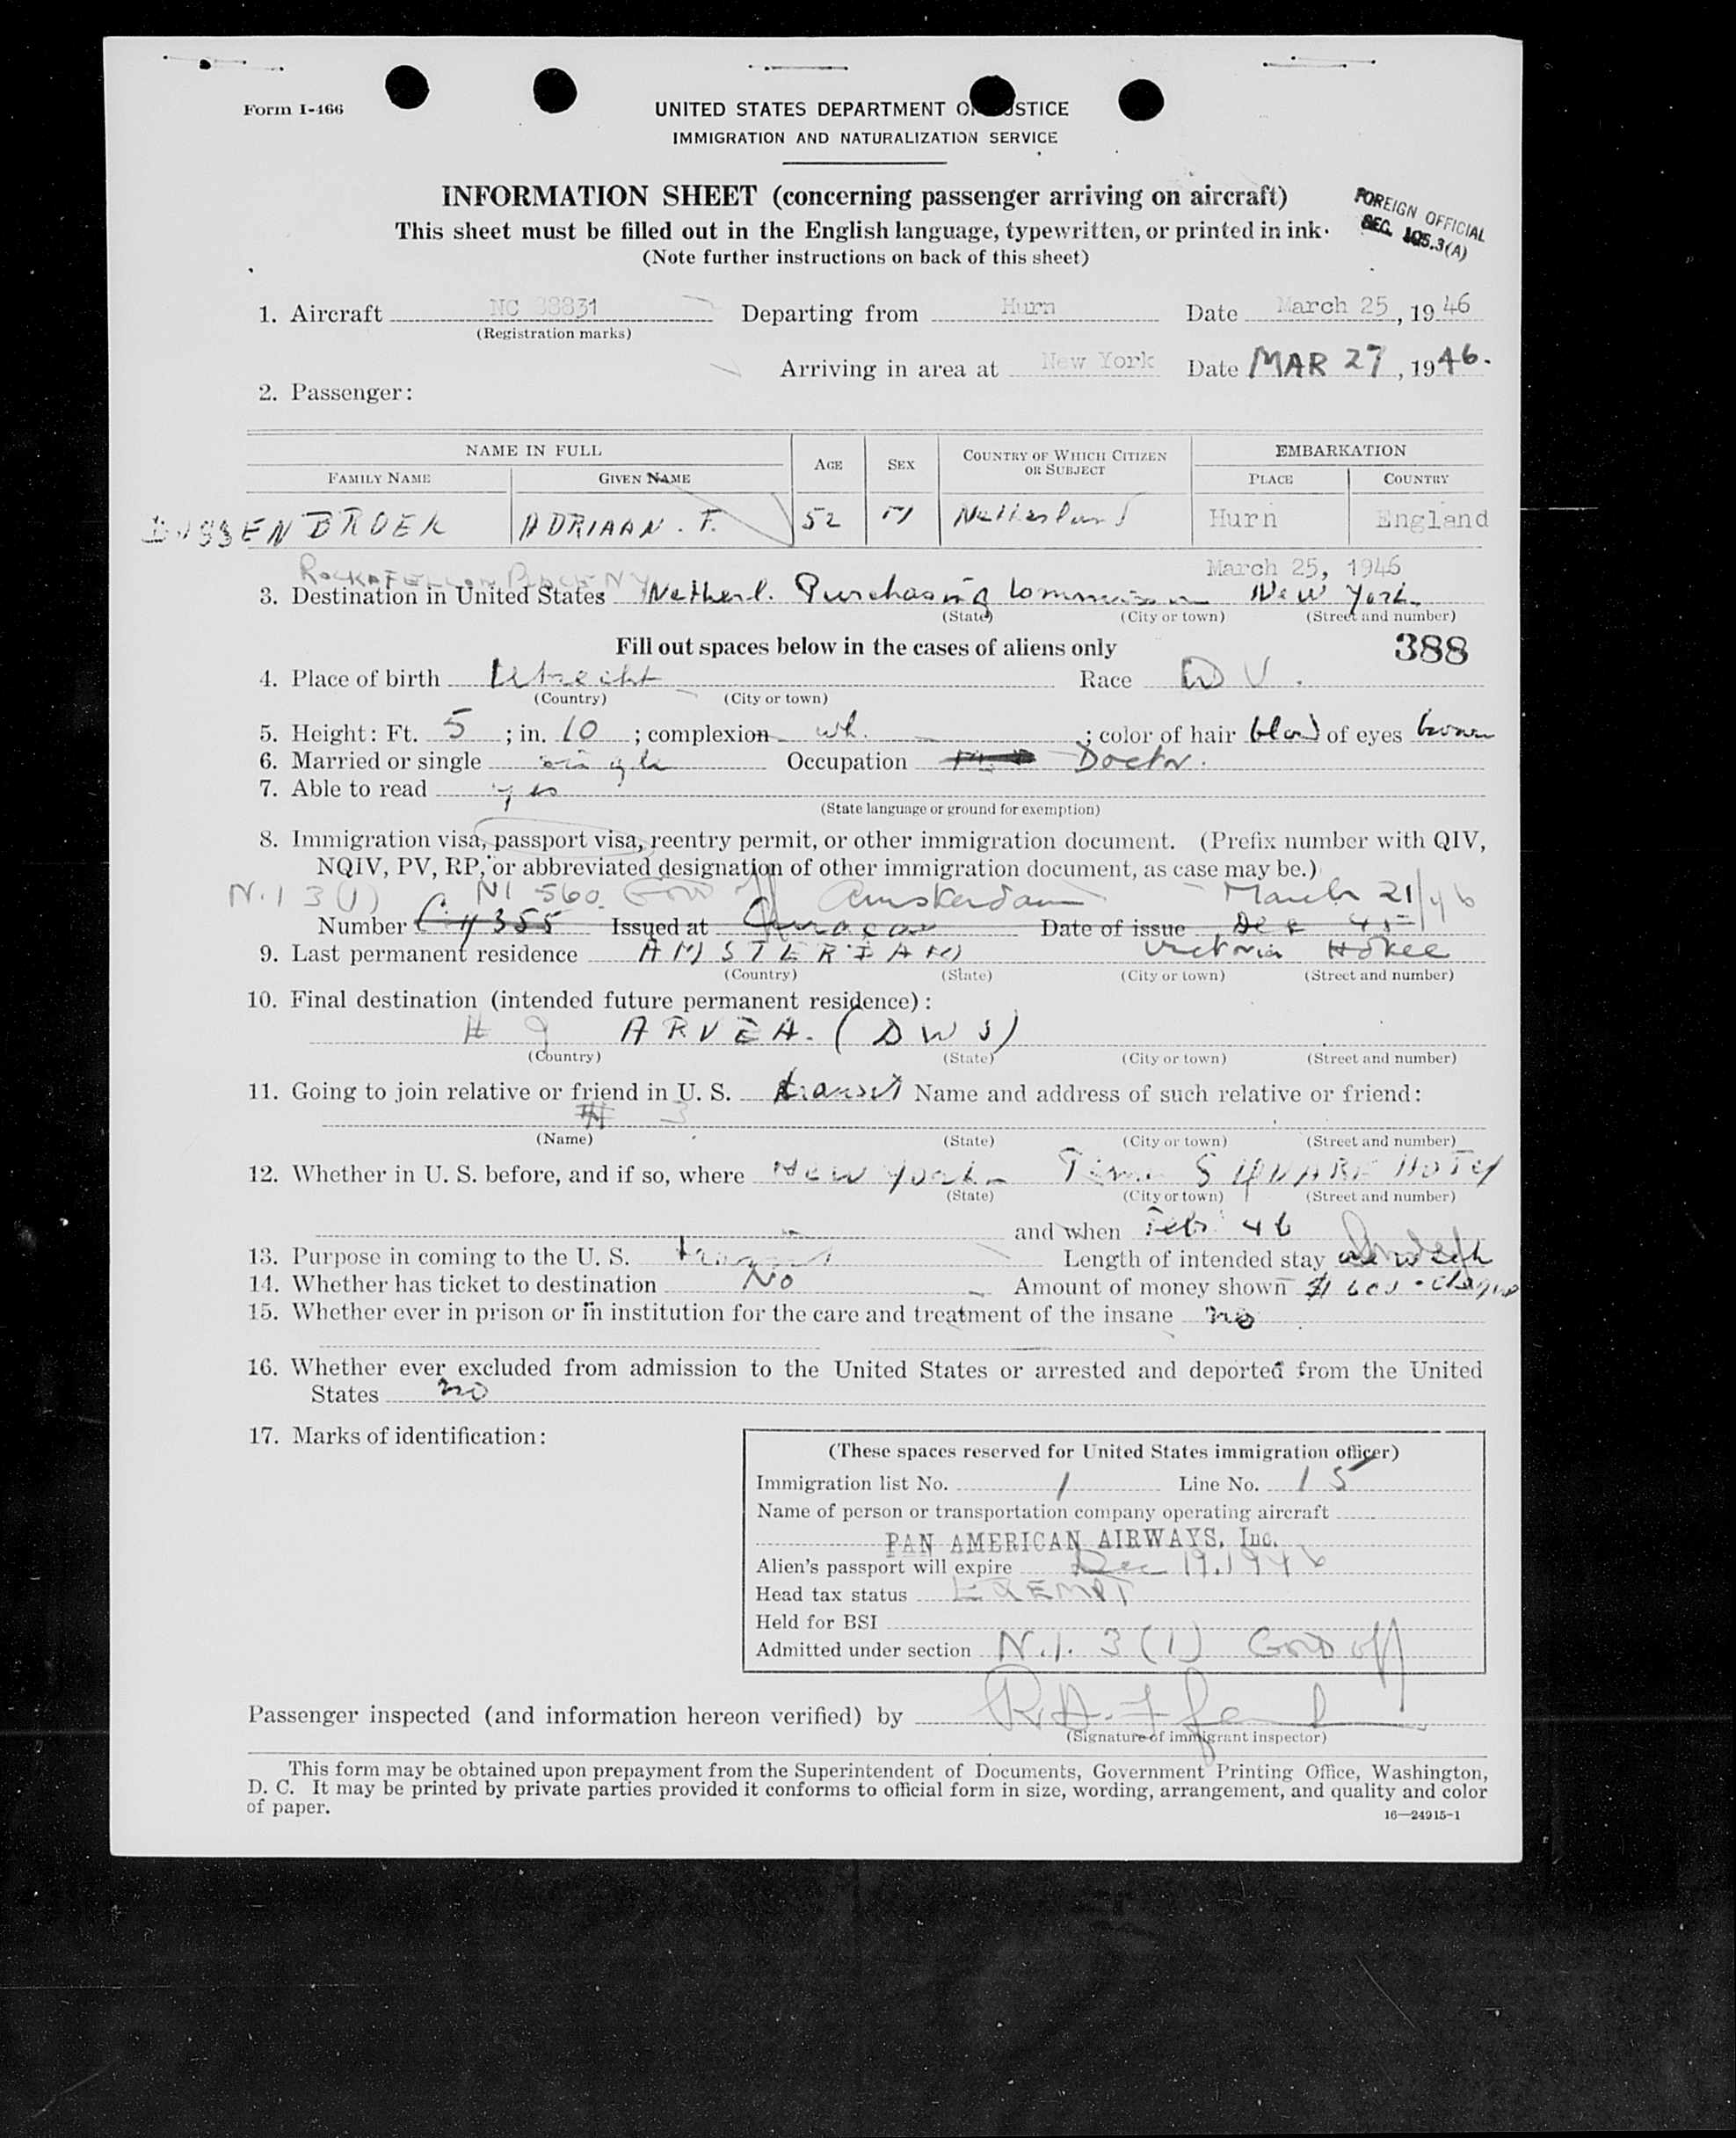 Form I-466
UNITED STATES DEPARTMENT OF JUSTICE
IMMIGRATION AND NATURALIZATION SERVICE
INFORMATION SHEET (concerning passenger arriving on aircraft)
This sheet must be filled out in the English language, typewritten, or printed in ink.
(Note further instructions on back of this sheet)
FOREIGN OFFICIAL
SEC. 105.3(A)
1. Aircraft NC 88831 Departing from Hurn Date March 25, 1946
(Registration marks)
Arriving in area at New York Date MAR 27, 1946.
2. Passenger:
NAME IN FULL AGE SEX COUNTRY OF WHICH CITIZEN OR SUBJECT EMBARKATION
FAMILY NAME GIVEN NAME PLACE COUNTRY
ADRIAAN. F. 52 M Netherland Hurn England
March 25, 1946
3. Destination in United States Netherl. Purchasing Commission New York
(State) (City or town) (Street and number)
Fill out spaces below in the cases of aliens only 388
4. Place of birth Utrecht Race DU.
(Country) (City or town)
5. Height: Ft. 5; in. 10; complexion wh.; color of hair blond of eyes brown
6. Married or single single Occupation Doctor.
7. Able to read yes
(State language or ground for exemption)
8. Immigration visa, passport visa, reentry permit, or other immigration document. (Prefix number with QIV,
NQIV, PV, RP, or abbreviated designation of other immigration document, as case may be.)
N.I 3(1) NI 560 Gov off Amsterdam March 21/46
Number 355 Issued at Curacao Date of issue Dec 45
9. Last permanent residence AMSTERDAM Victoria Hotel
(Country) (State) (City or town) (Street and number)
10. Final destination (intended future permanent residence):
ARUBA. (DWJ)
(Country) (State) (City or town) (Street and number)
11. Going to join relative or friend in U. S. transit Name and address of such relative or friend:
(Name) (State) (City or town) (Street and number)
12. Whether in U. S. before, and if so, where New York SQUARE HOTEL
(State) (City or town) (Street and number)
and when Feb 46
13. Purpose in coming to the U. S. transit Length of intended stay one week
14. Whether has ticket to destination No Amount of money shown $ 600
15. Whether ever in prison or in institution for the care and treatment of the insane no
16. Whether ever excluded from admission to the United States or arrested and deported from the United
States no
17. Marks of identification:
(These spaces reserved for United States immigration officer)
Immigration list No. 1 Line No. 15
Name of person or transportation company operating aircraft
PAN AMERICAN AIRWAYS, Inc.
Alien's passport will expire Dec 19. 1946
Head tax status EXEMPT
Held for BSI
Admitted under section N.I. 3 (1) Gov off
Passenger inspected (and information hereon verified) by
(Signature of immigrant inspector)
This form may be obtained upon prepayment from the Superintendent of Documents, Government Printing Office, Washington,
D. C. It may be printed by private parties provided it conforms to official form in size, wording, arrangement, and quality and color
of paper.
16—24915-1